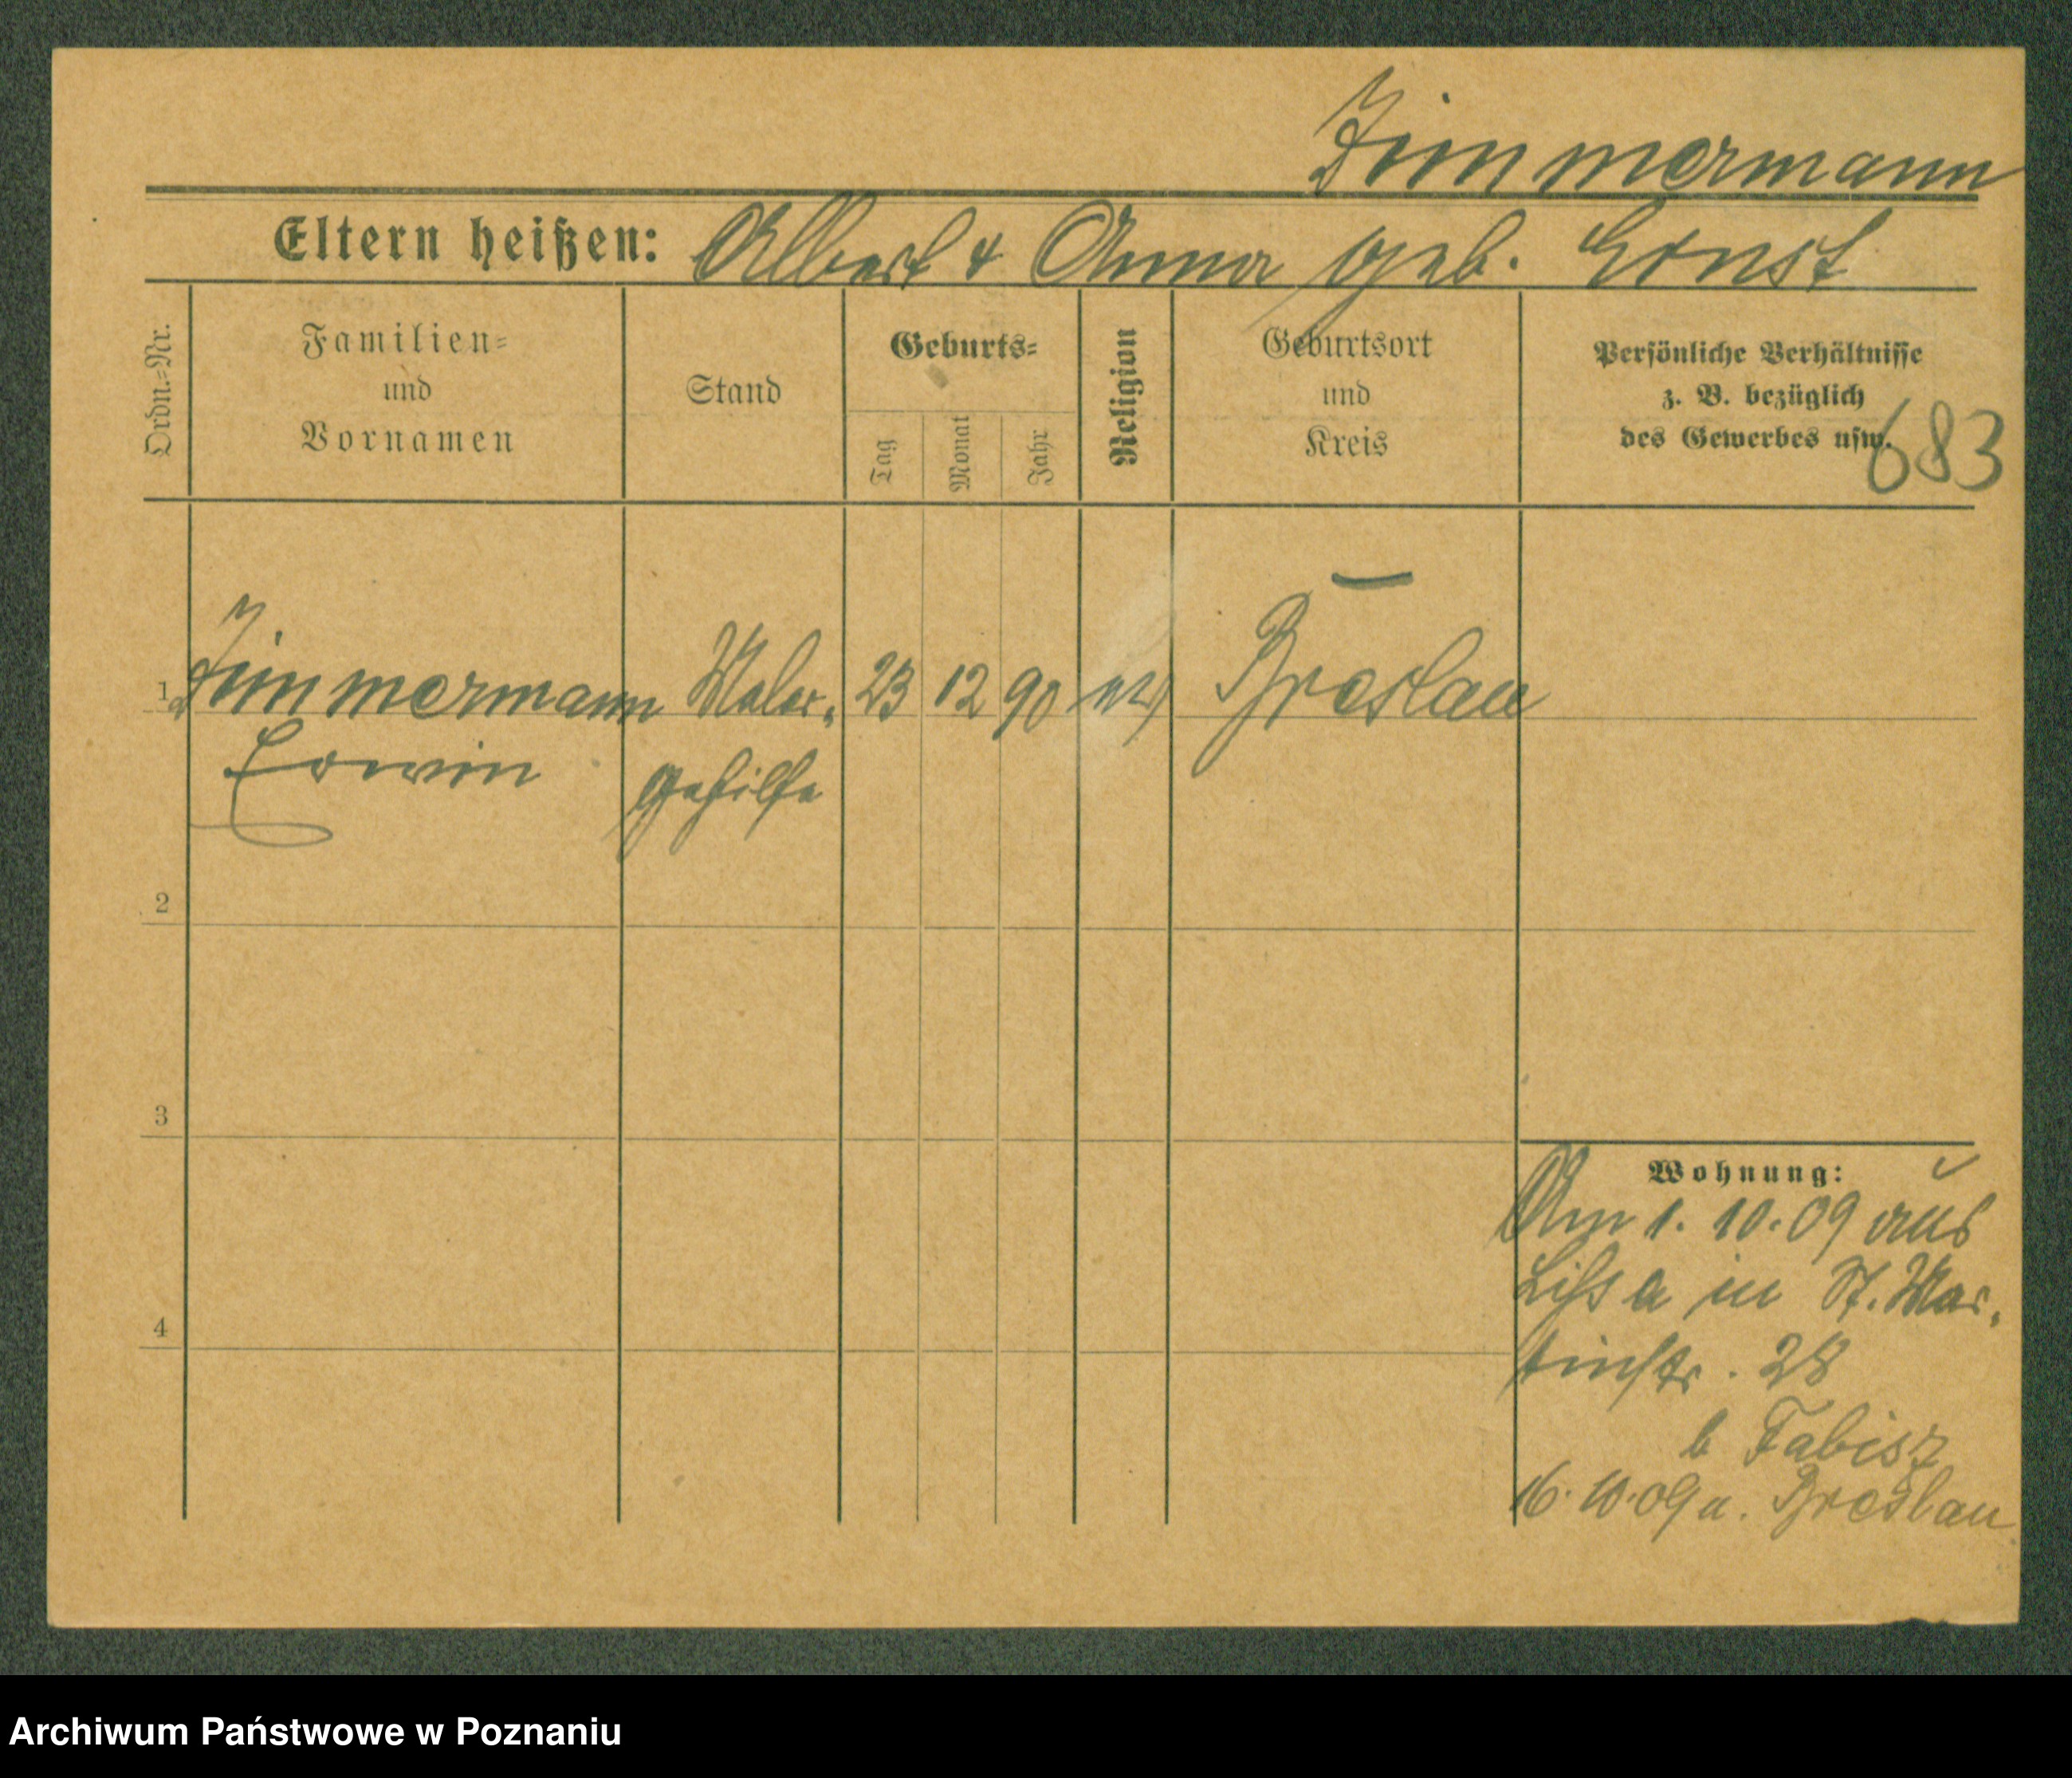 Zimmermann
Eltern heißen: Albert & Anna geb. Ernst
Ordn.=Nr.
Familien=
und
Vornamen
Stand
Geburts=
Tag
Monat
Jahr
Religion
Geburtsort
und
Kreis
Persönliche Verhältnisse
z. B. bezüglich
des Gewerbes usw.
683
1 Zimmermann Maler- 23 12 90 Breslau
Erwin gehilfe
2
3
4
Wohnung:
Am 1. 10. 09 aus
Lissa in St. Mar-
tinstr. 28
b Fabisz
16. 10. 09 n. Breslau
Archiwum Państwowe w Poznaniu